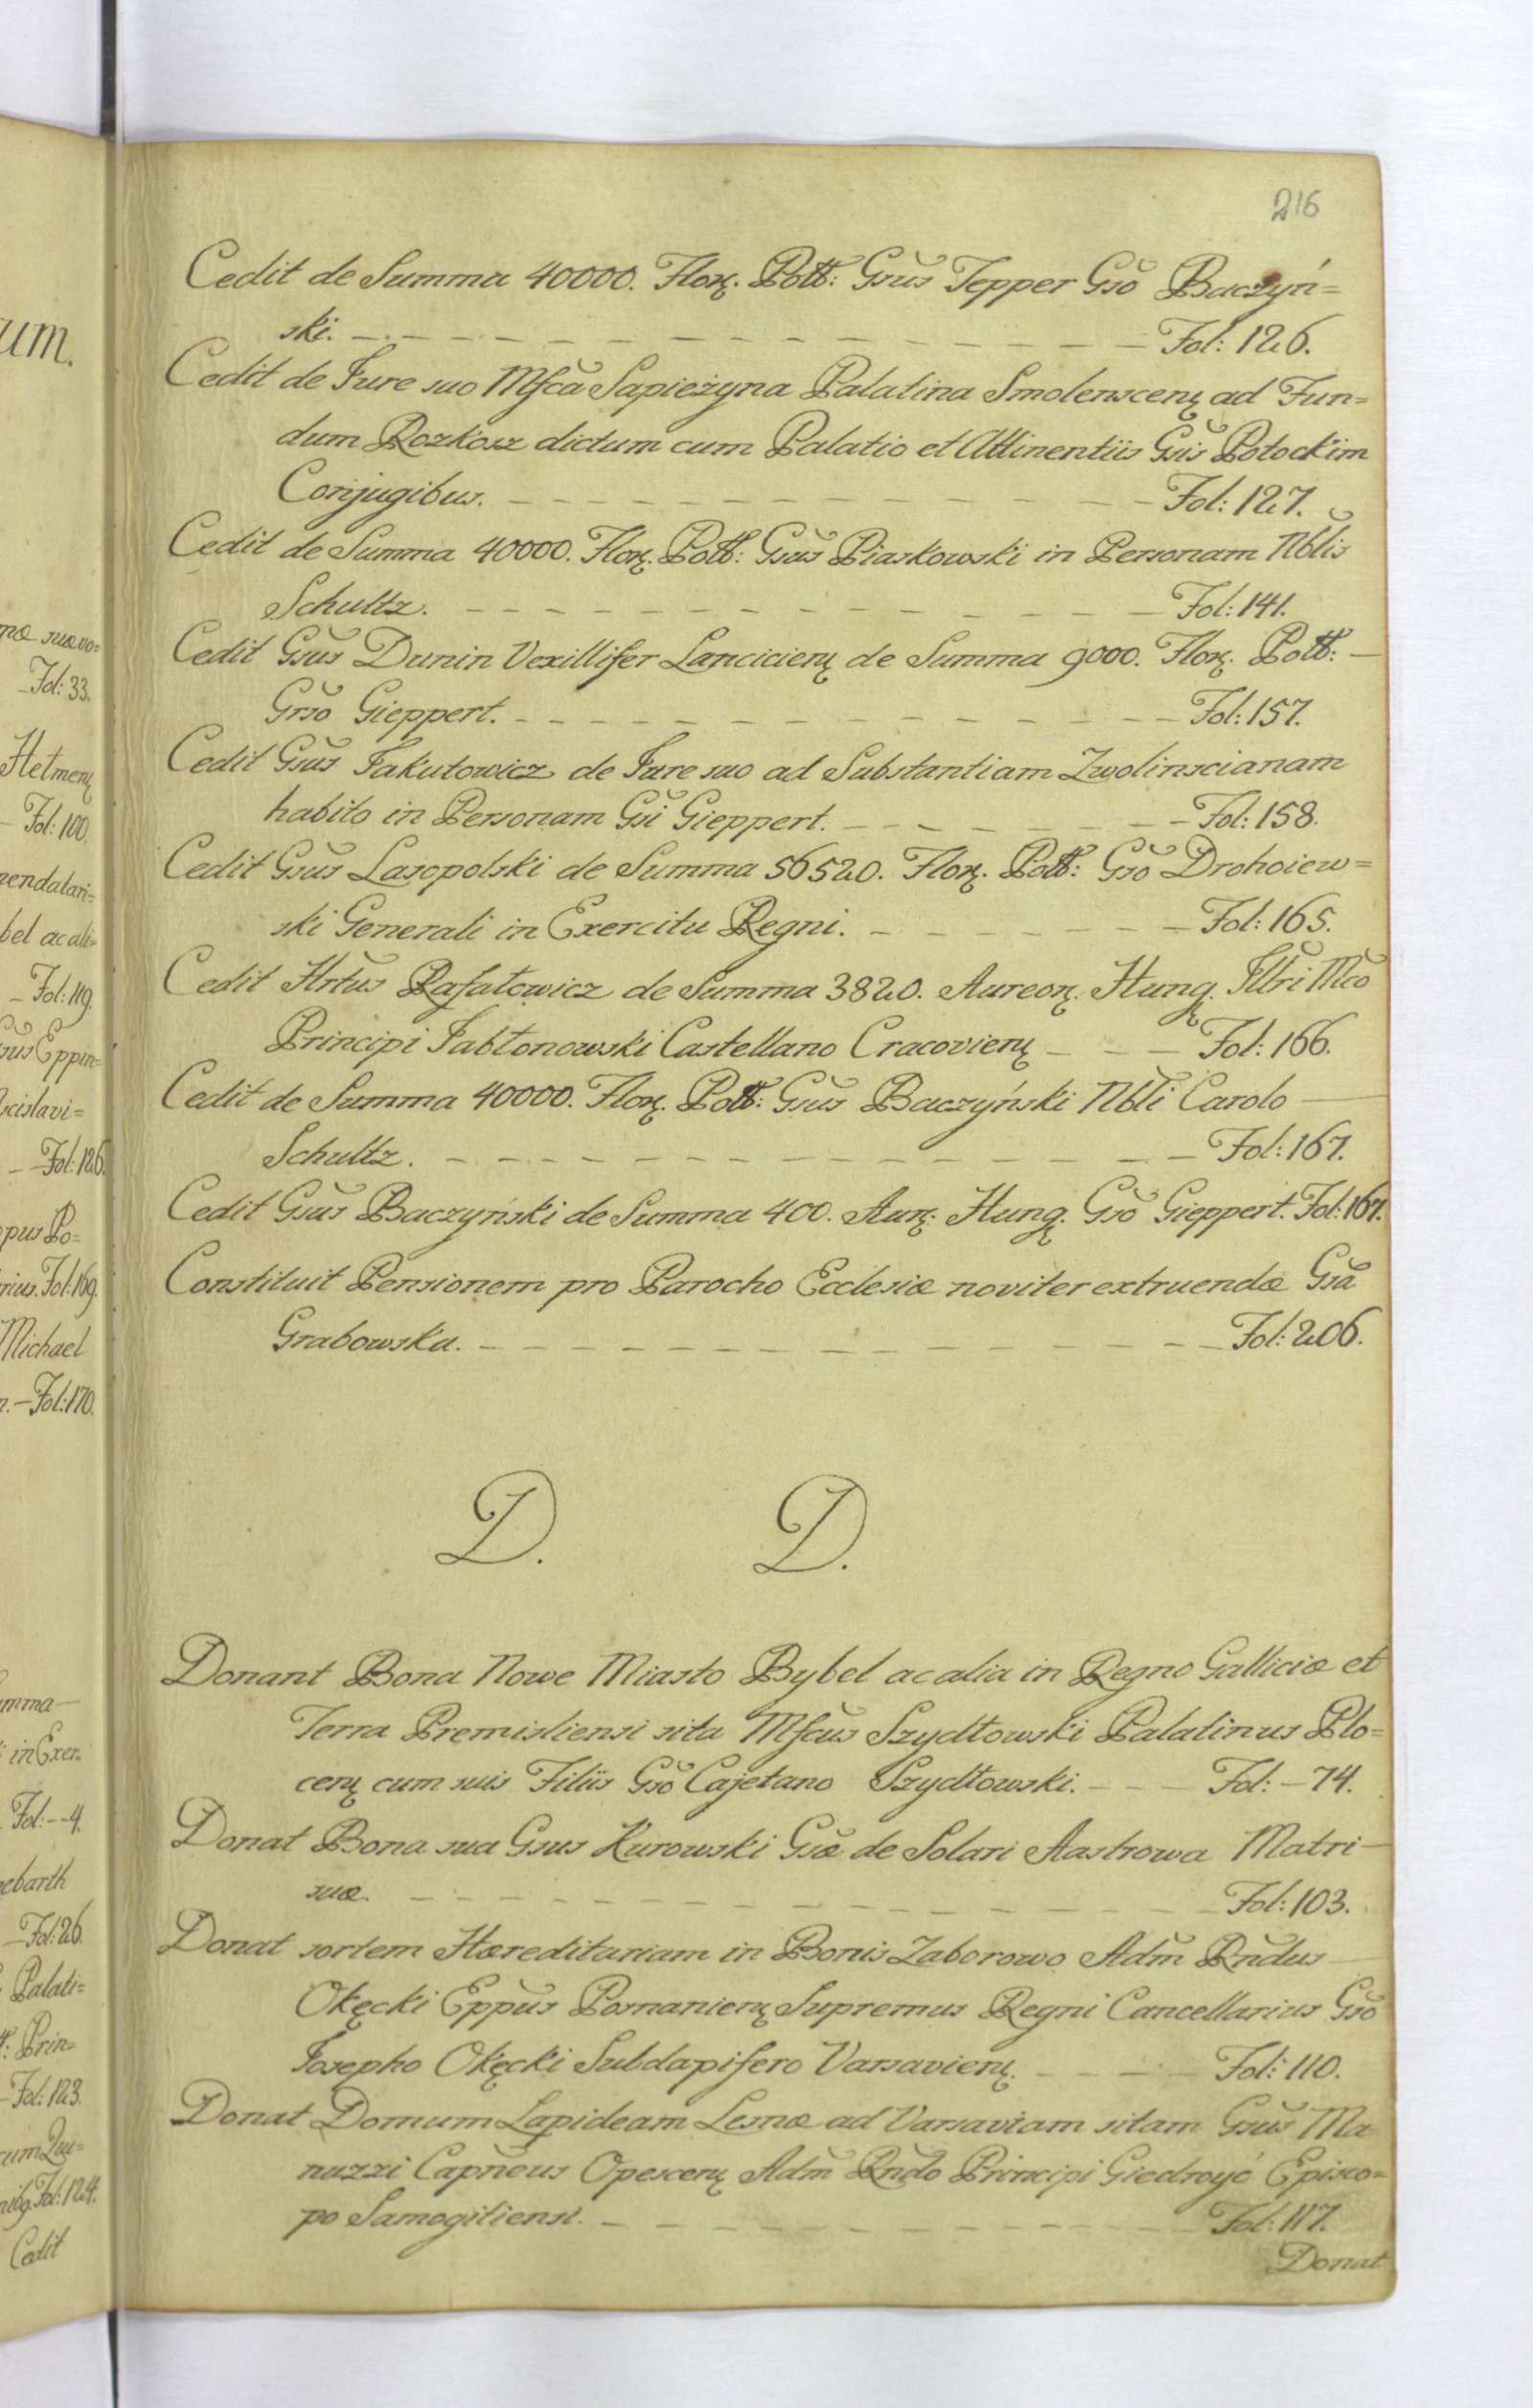 um.
næ suæ vo=
Fol: 33.
Hetmenȩ
Fol: 100.
bel ac ali=
Fol: 119.
Fol: 126.
pus Po=
rius. Fol: 169.
Michael
Fol: 170.
in Exer=
Fol: --4.
ebarth
Fol: 26.
Palati=
Prin=
Fol: 123.
Fol: 124.
Cedit
216
Cedit de Summa 40000. Florȩ. Poll: Gsŭs Tepper Gsŏ Baczyń=
ski. — Fol: 126.
Cedit de Jure suo Mfcă Sapieżyna Palatina Smolenscenȩ ad Fun=
dum Rozkosz dictum cum Palatio et Attinentiis Gsĭs Potockim
Conjugibus. — Fol: 127.
Cedit de Summa 40000. Florȩ. Poll: Gsŭs Piaskowski in Personam Nblĭs
Schultz. — Fol: 141.
Cedit Gsŭs Dunin Vexillifer Lancicienȩ de Summa 9000. Florȩ. Poll: —
Grsŏ Gieppert. — Fol: 157.
Cedit Gsŭs Jakutowicz de Jure suo ad Substantiam Zwolinscianam
habito in Personam Gsĭ Gieppert. — Fol: 158.
Cedit Gsŭs Lasopolski de Summa 56520. Florȩ. Poll: Gsŏ Drohoiew=
ski Generali in Exercitu Regni. — Fol: 165.
Cedit Hrtŭs Rafałowicz de Summa 3820. Aureorȩ. Hungȩ. Illrĭ Mcŏ
Principi Jabłonowski Castellano Cracovienȩ — Fol: 166.
Cedit de Summa 40000. Florȩ. Poll: Gsŭs Baczyński Nblĭ Carolo —
Schultz. — Fol: 167.
Cedit Gsŭs Baczyński de Summa 400. Aurȩ: Hungȩ. Gsŏ Gieppert. Fol: 167.
Constituit Pensionem pro Parocho Ecclesiæ noviter extruendæ Gsă
Grabowska. — Fol: 206.
D. D.
Donant Bona Nowe Miasto Bybel ac alia in Regno Galliciæ et
Terra Premisliensi sita Mfcŭs Szydłowski Palatinus Plo=
cenȩ cum suis Filiis Gsŏ Cajetano Szydłowski. — Fol: — 74.
Donat Bona sua Gsus Kurowski Gsæ̆ de Solari Aastrowa Matri —
suæ. — Fol: 103.
Donat sortem Hæreditariam in Bonis Zaborowo Adm̆ Rndŭs —
Okęcki Eppŭs Posnanienȩ Supremus Regni Cancellarius Gsŏ
Josepho Okęcki Subdapifero Varsavienȩ. — Fol: 110.
Donat Domum Lapideam Lesnæ ad Varsaviam sitam Gsŭs Ma=
nuzzi Capn̆eus Opescenȩ Adm̆ Rndŏ Principi Giedroyć Episco=
po Samogitiensi. — Fol: 117.
Donat